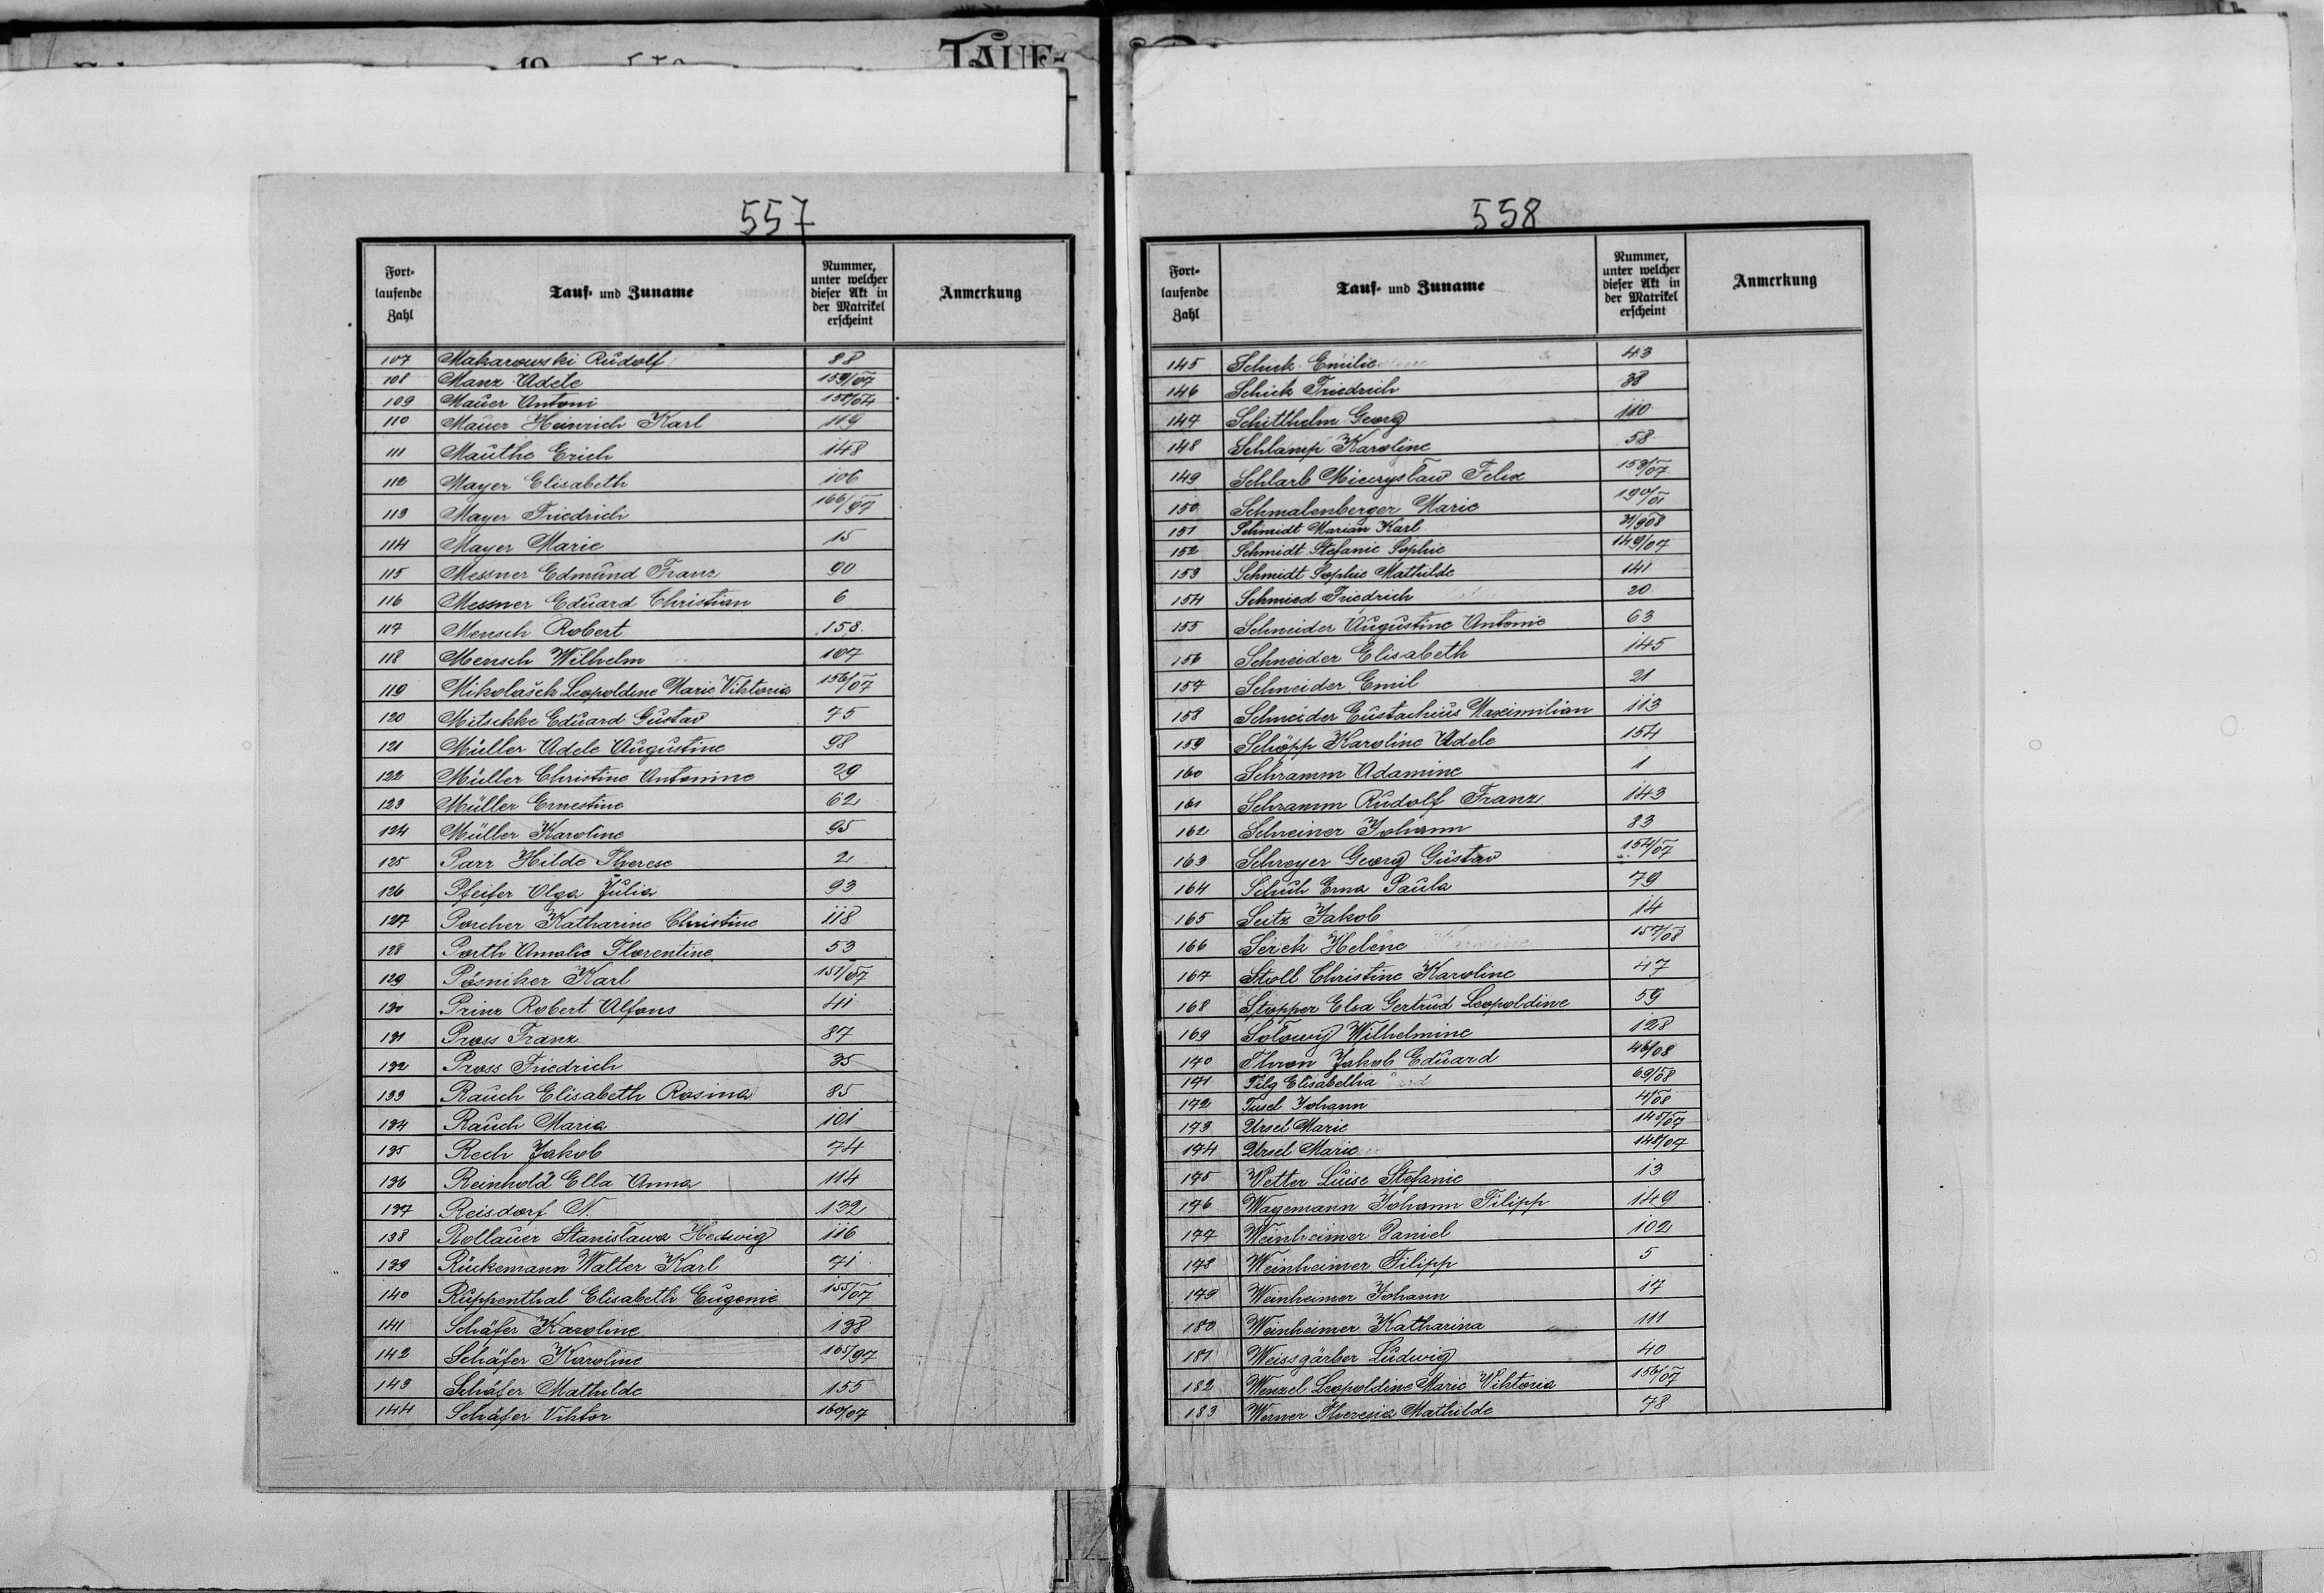 TAUF-
557
Fort-laufende Zahl | Tauf- und Zuname | Nummer, unter welcher dieser Akt in der Matrikel erscheint | Anmerkung
107 Makarowski Rudolf 88
108 Manz Adele 159/07
109 Mauer Antoni
110 Mauer Heinrich Karl 119
111 Mauthe Erich 148
112 Mayer Elisabeth 106
113 Mayer Friedrich 166/97
114 Mayer Marie 15
115 Messner Edmund Franz 90
116 Messner Eduard Christian 6
117 Mensch Robert 158
118 Mensch Wilhelm 107
119 Mikolašek Leopoldine Marie Viktoria 156/07
120 Mitschke Eduard Gustav 75
121 Müller Adele Augustine 98
122 Müller Christine Antonine 29
123 Müller Ernestine 62
124 Müller Karoline 95
125 Parr Hilde Therese 2
126 Pfeifer Olga Julia 93
127 Porcher Katharine Christine 118
128 Porth Amalie Florentine 53
129 Pösniker Karl 151/07
130 Prinz Robert Alfons 41
131 Pross Franz 87
132 Pross Friedrich 35
133 Rauch Elisabeth Rosina 85
134 Rauch Maria 101
135 Rech Jakob 74
136 Reinhold Ella Anna 114
137 Reisdorf N. 132
138 Rollauer Stanisława Hedwig 116
139 Rückemann Walter Karl 71
140 Ruppenthal Elisabeth Eugenie 155/07
141 Schäfer Karoline 138
142 Schäfer Karoline 165/97
143 Schäfer Mathilde 155
144 Schäfer Viktor 160/07
558
Fort-laufende Zahl | Tauf- und Zuname | Nummer, unter welcher dieser Akt in der Matrikel erscheint | Anmerkung
145 Schick Emilie 43
146 Schick Friedrich 38
147 Schitthelm Georg 110
148 Schlamp Karoline 58
149 Schlarb Mieczysław Felix 158/07
150 Schmalenberger Marie 190/01
151 Schmidt Marian Karl 31/908
152 Schmidt Stefanie Sophie 149/07
153 Schmidt Sophie Mathilde 141
154 Schmied Friedrich 20
155 Schneider Augustine Antonie 63
156 Schneider Elisabeth 145
157 Schneider Emil 21
158 Schneider Eustachius Maximilian 113
159 Schöpp Karoline Adele 154
160 Schramm Adamine 1
161 Schramm Rudolf Franz 143
162 Schreiner Johann 83
163 Schreyer Georg Gustav 154/07
164 Schuh Erna Paula 79
165 Seitz Jakob 14
166 Serek Helene 157/08
167 Stoll Christine Karoline 47
168 Stopper Elsa Gertrud Leopoldine 59
169 Sołowij Wilhelmine 128
170 Thron Jakob Eduard 46/08
171 Tilg Elisabetha 69/08
172 Tusel Johann 4/08
173 Ursel Marie 145/07
174 Ursel Marie 148/07
175 Vetter Luise Stefanie 13
176 Wagemann Johann Filipp 149
177 Weinheimer Daniel 102
178 Weinheimer Filipp 5
179 Weinheimer Johann 17
180 Weinheimer Katharina 111
181 Weissgärber Ludwig 40
182 Wenzel Leopoldine Marie Viktoria 156/07
183 Werner Theresia Mathilde 78